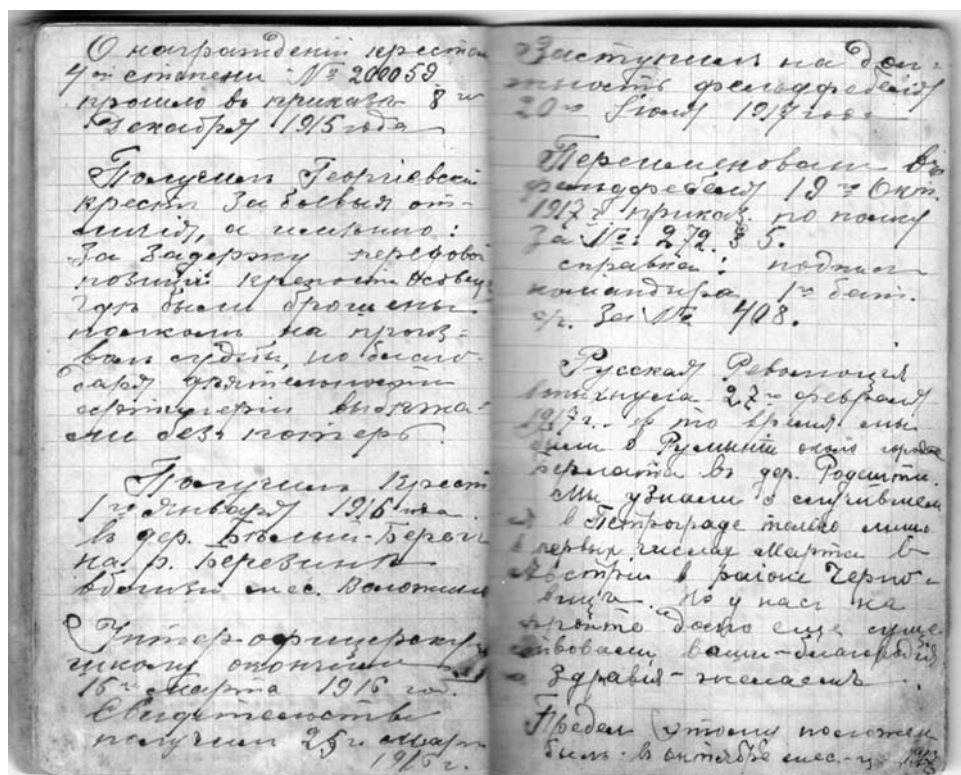 О награждении крестом
4ой степени № 200059
прошло въ приказъ 8го
Декабря 1915 года
Получилъ Георгіевскій
крестъ За боевыя от-
личія, а именно:
За Задержку передовой
позиціи крепости Осовец
гдѣ были брошены
полкомъ на произ-
вол судьбы, но благо-
даря деятельности
артиллеріи выбѣжа-
ли безъ потерь.
Получилъ Крест
1го Января 1916 года
въ дер. Бѣлый-Берегъ
на р. Березинѣ
вблизи мес. Воложин
Унтер-офицерскую
школу окончилъ
16го Марта 1916 год.
Свидетельство
получил 25 г. Март
1916 г.
Заступилъ на дол-
жность фельдфебеля
20го Іюля 1917 года
Переименован въ
фельдфебеля 19го Окт.
1917 г. приказ. по полку
За №: 272. § 5.
справка: подпись
командира 1го бат.
За № 408.
Русская Революция
вспыхнула 27го февраля
1917 г. В то время мы
были в Румыніи около города
Берлата въ дер. Родешти.
Мы узнали о случившем
в Петрограде только лишь
в первых числах Марта в
Австріи в районе Черно-
вицъ. Но у насъ на
фронте долго еще суще
ствовали ваши-благородия
и Здравія-желаемъ.
Предел этому положен
былъ в октябре мес-ц 1917